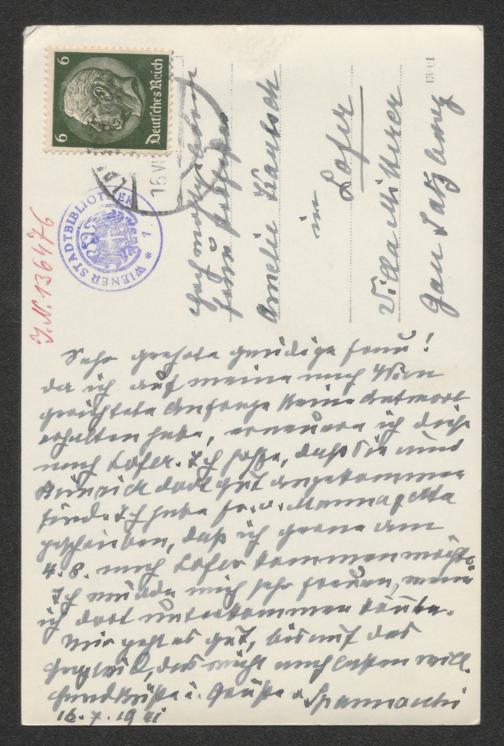 6
6
Deutsches Reich
16.VI
WIENER STADTBIBLIOTHEK
* 1 *
J.N. 136476
Hochwohlgeboren
Frau
Amelie
in
Lofer
Villa Mitterer
Gau Salzburg
Sehr geehrte gnädige Frau!
da ich auf meine nach Wien
gerichtete Anfrage keine Antwort
erhalten habe, erneuere ich diese
nach Lofer. Ich hoffe, daß Sie und
Heinrich dort gut angekommen
sind. Ich habe Fr. v.
geschrieben, daß ich gerne am
4. 8. nach Lofer kommen möchte.
Ich würde mich sehr freuen, wenn
ich dort unterkommen könnte.
Mir geht es gut, bis auf das
das nicht nachlassen will.
Handküsse u. Grüße v. Spannocchi
16.7.1941